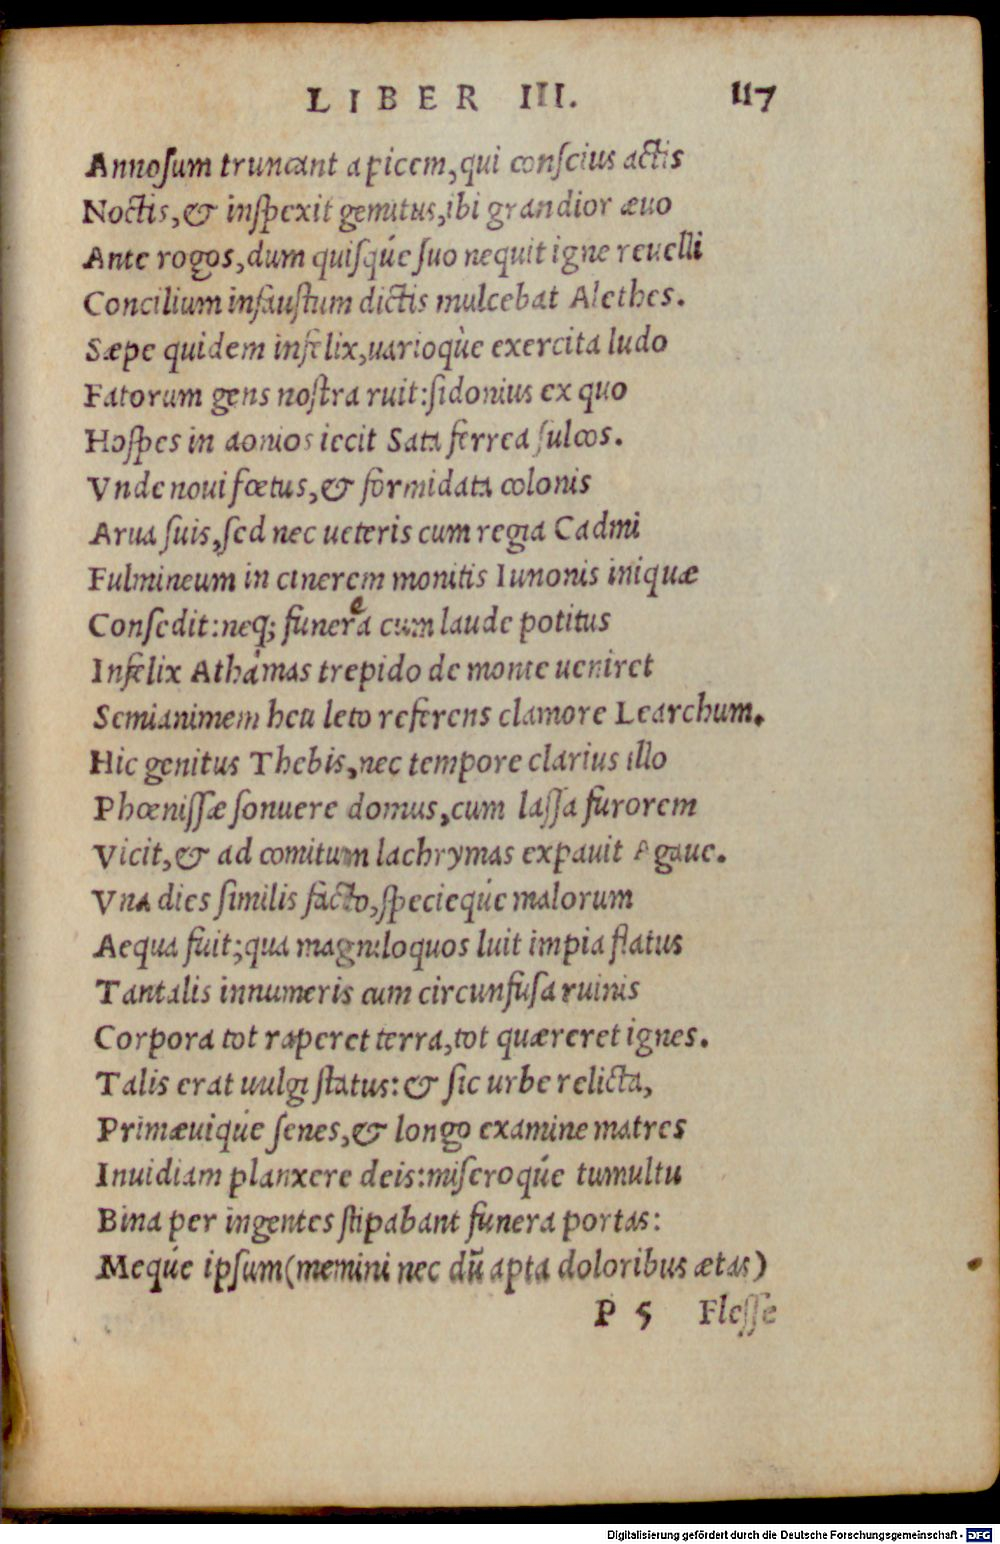 LIBER III. 117
Annoſum truncant apicem, qui conſcius actis
Noctis, & inſpexit gemitus, ibi grandior æuo
Ante rogos, dum quiſqúe ſuo nequit igne reuelli
Concilium infauſtum dictis mulcebat Alethes.
Sæpe quidem infelix, uarioqùe exercita ludo
Fatorum gens noſtra ruit: ſidonius ex quo
Hoſpes in aonios iecit Sata ferrea ſulcos.
Vnde noui fœtus, & formidata colonis
Arua ſuis, ſed nec ueteris cum regia Cadmi
Fulmineum in cinerem monitis Iunonis iniquæ
Conſedit: neq; funerea cum laude potitus
Infelix Athámas trepido de monte ueniret
Semianimem heu leto referens clamore Learchum.
Hic genitus Thebis, nec tempore clarius illo
Phœniſſæ ſonuere domus, cum laſſa furorem
Vicit, & ad comitum lachrymas expauit Agaue.
Vna dies ſimilis facto, ſpecieqúe malorum
Aequa fuit; qua magniloquos luit impia flatus
Tantalis innumeris cum circunfuſa ruinis
Corpora tot raperet terra, tot quæreret ignes.
Talis erat uulgi ſtatus: & ſic urbe relicta,
Primæuiqúe ſenes, & longo examine matres
Inuidiam planxere deis: miſeroqúe tumultu
Bina per ingentes ſtipabant funera portas:
Meqúe ipſum (memini nec dũ apta doloribus ætas)
P 5 Fleſſe
Digitalisierung gefördert durch die Deutsche Forschungsgemeinschaft - DFG